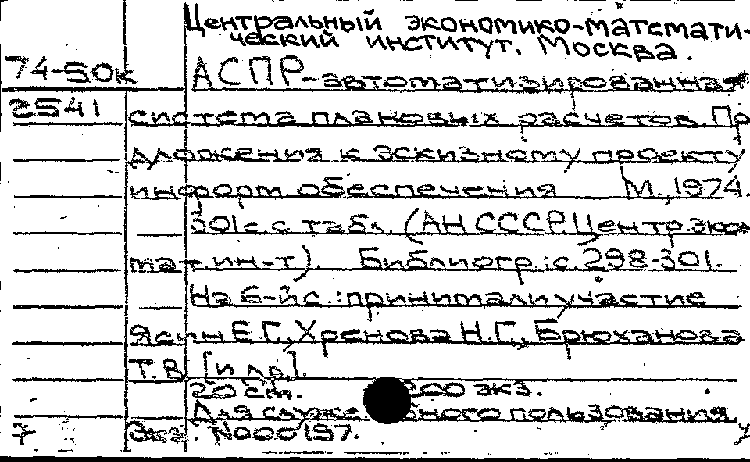 Центральный экономико-математи-
ческий институт. Москва.
74-50к
АСПР-автоматизированная
2541
система плановых расчетов. Пр
дложения к эскизному проекту
информ обеспечения М., 1974.
301с. с табл. (АН СССР. Центр. эко
мат. ин-т). Библиогр.: с. 298-301.
На 6-й с.: принимали участие
Ясин Е.Г., Хренова Н.Г., Брюханова
Т.В. [и др.].
20 см. 200 экз.
Для служебного пользования
7 Экз. N000197.